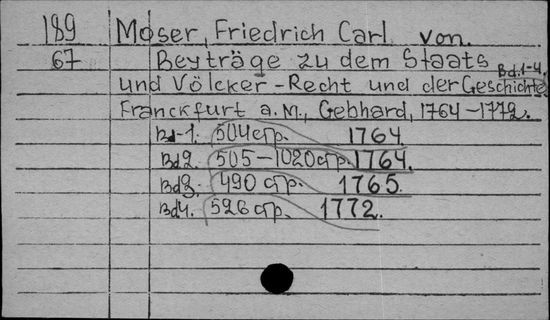 189 Moser, Friedrich Carl von.
67 Beyträge zu dem Staats
und Völcker-Recht und der Geschichte Bd.1-4.
Franckfurt a.M., Gebhard, 1764-1772.
Bd-1. 504 стр. 1764
Bd2. 505-1020 стр. 1764.
Bd3. 490 стр. 1765.
Bd4. 526 стр. 1772.